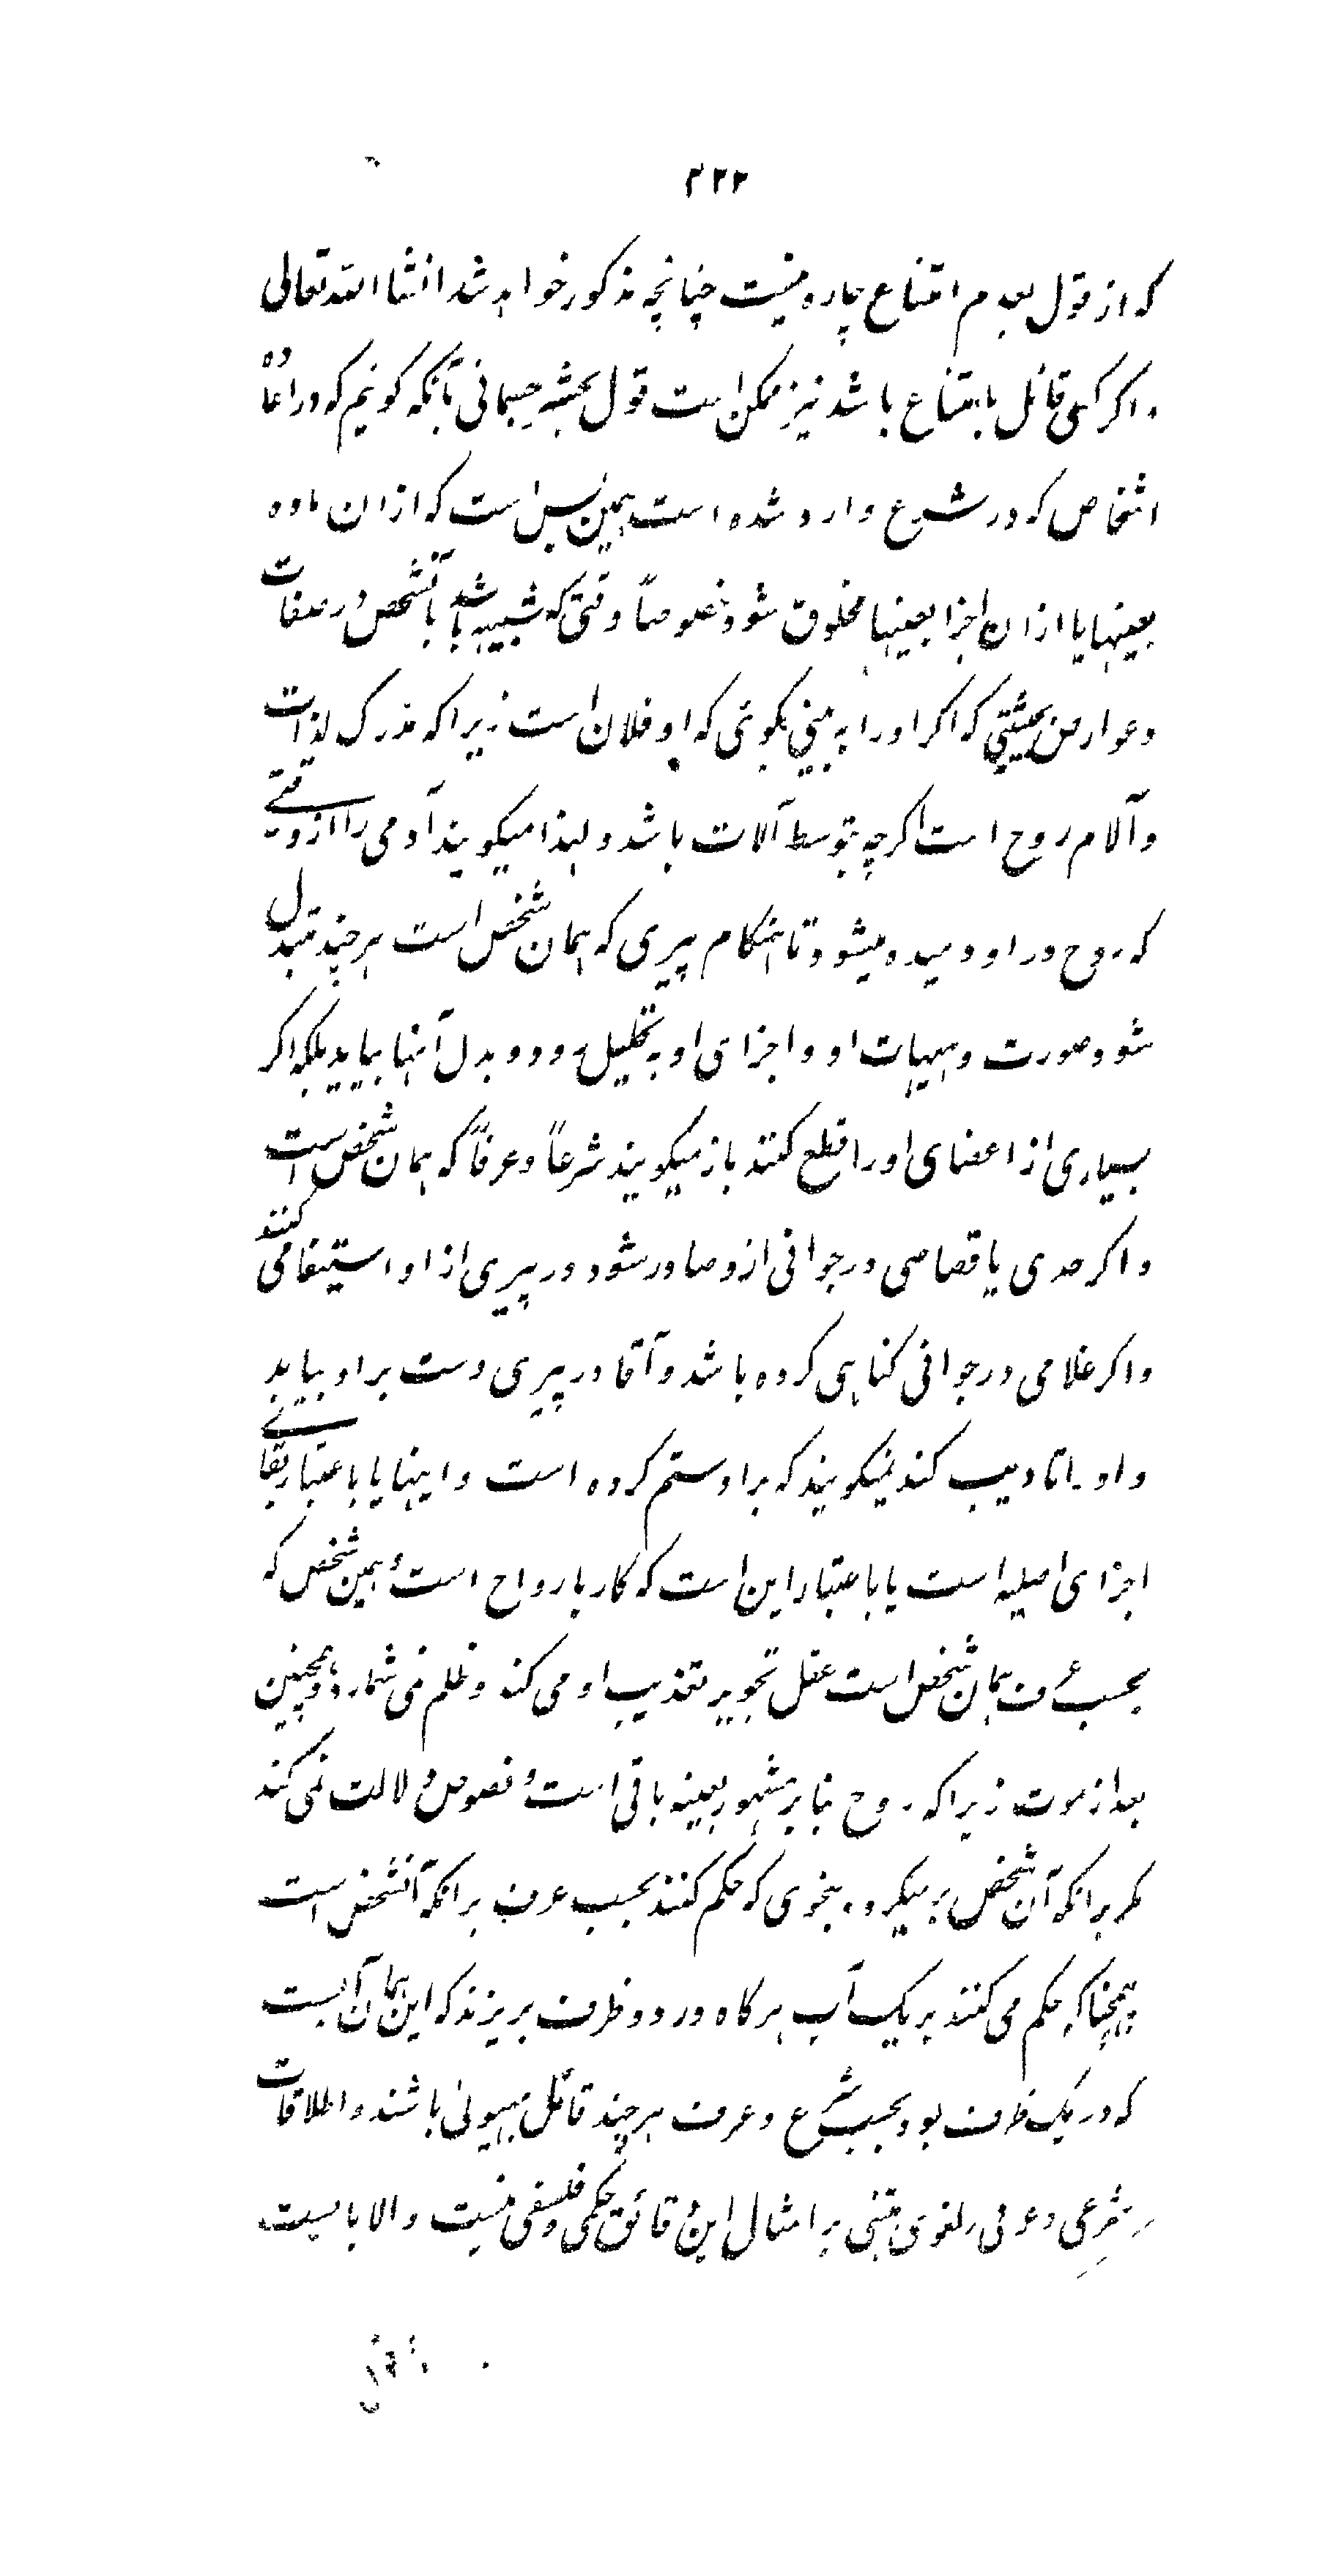 ۳۲۲
که از قول بعدم امتناع چاره نیست چنانچه مذکور خواهد شد انشا الله تعالی
و اگر کسی قائل بامتناع باشد نیز ممکن است قول بحشر جسمانی بآنکه گوئیم که در اعاده
اشخاص که در شرع وارد شده است همین بس است که از ان ماده
بعینها یا از ان اجزا بعینها مخلوق شود خصوصاً وقتی که شبیه باشد بآنشخص در صفات
و عوارض بحیثیتی که اگر او را به بینی بگوئی که او فلان است زیرا که مدرک لذات
و آلام روح است اگرچه بتوسط آلات باشد و لهذا میگویند آدمی را از وقتے
که روح در او دمیده میشود تا هنگام پیری که همان شخص است هرچند متبدل
شود صورت و هیهات او و اجزای او به تحلیل رود و بدل آنها بیاید بلکه اگر
بسیاری از اعضای او را قطع کنند باز میگویند شرعاً و عرفاً که همان شخص است
و اگر حدی یا قصاصی در جوانی از و صادر شود در پیری از او استیفا می کنند
و اگر غلامی در جوانی گناهی کرده باشد و آقا در پیری دست بر او بیابد
و او را تادیب کند نمیگویند که بر او ستم کرده است و اینها یا باعتبار بقاے
اجزای اصلیه است یا باعتبار این است که کار با رواح است و همین شخص که
بحسب عرف همان شخص است عقل تجویز تعذیب او می کند و ظلم نمی شمارد و همچنین
بعد از موت زیرا که روح بنا بر مشهور بعینه باقی است و نصوص دلالت نمی کند
مگر برانکه آن شخص بر میگردد بنحوی که حکم کنند بحسب عرف برانکه آنشخص است
همچنانکه حکم می کنند بر یک آب هرگاه در دو ظرف بریزند که این همان آبست
که در یک ظرف بود بحسب شرع و عرف هرچند قائل بهیولی باشند و اطلاقات
شرعی و عرفی و لغوی مبتنی بر امثال این دقائق حکمی و فلسفی نیست و الا بایست